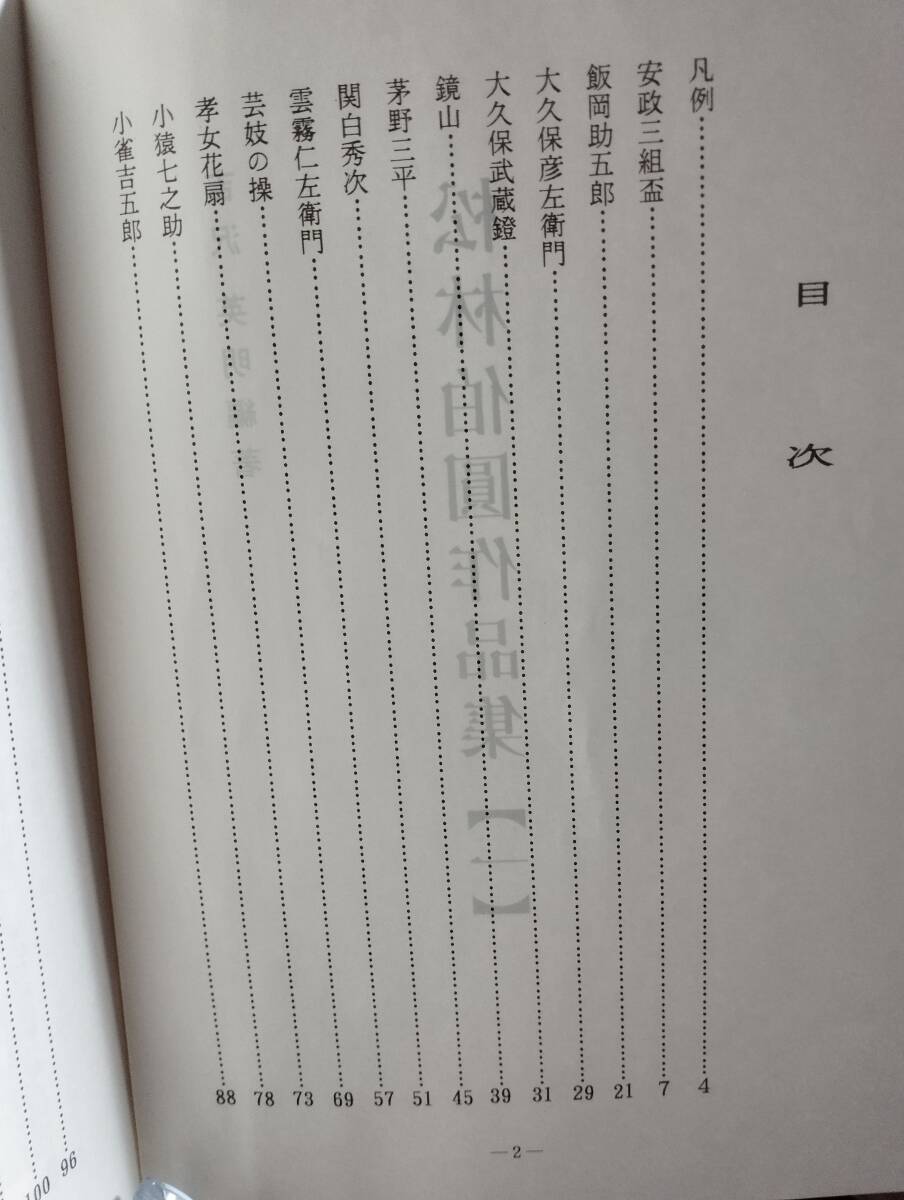 目次
凡例……4
安政三組盃……7
飯岡助五郎……21
大久保彦左衛門……29
大久保武蔵鐙……31
鏡山……39
茅野三平……45
関白秀次……51
雲霧仁左衛門……57
芸妓の操……69
孝女花扇……73
小猿七之助……78
小雀吉五郎……88
—2—
松林伯圓作品集【一】
沢英明編著
96
100